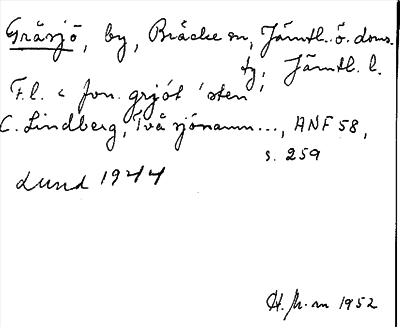 Gräsjö, by, Bräcke sn, Jämtl. ö. doms.
tg, Jämtl. l.
F.l. < fvn. grjót 'sten'
C. Lindberg, Två sjönamn..., ANF 58,
s. 259
Lund 1944
1952